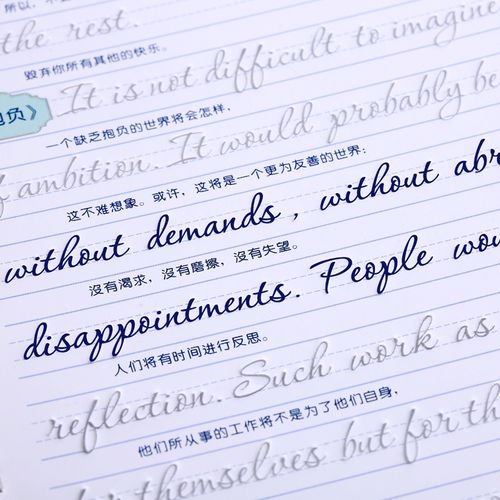 所以，不
the rest.
毁弃你所有其他的快乐。
It is not difficult to imagine
抱负》
一个缺乏抱负的世界将会怎样，
of ambition. It would probably be
这不难想象。或许，这将是一个更为友善的世界：
without demands , without abr
沒有渴求，沒有磨擦，沒有失望。
disappointments. People wou
人们将有时间进行反思。
reflection. Such work as
他们所从事的工作将不是为了他们自身，
themselves but for th